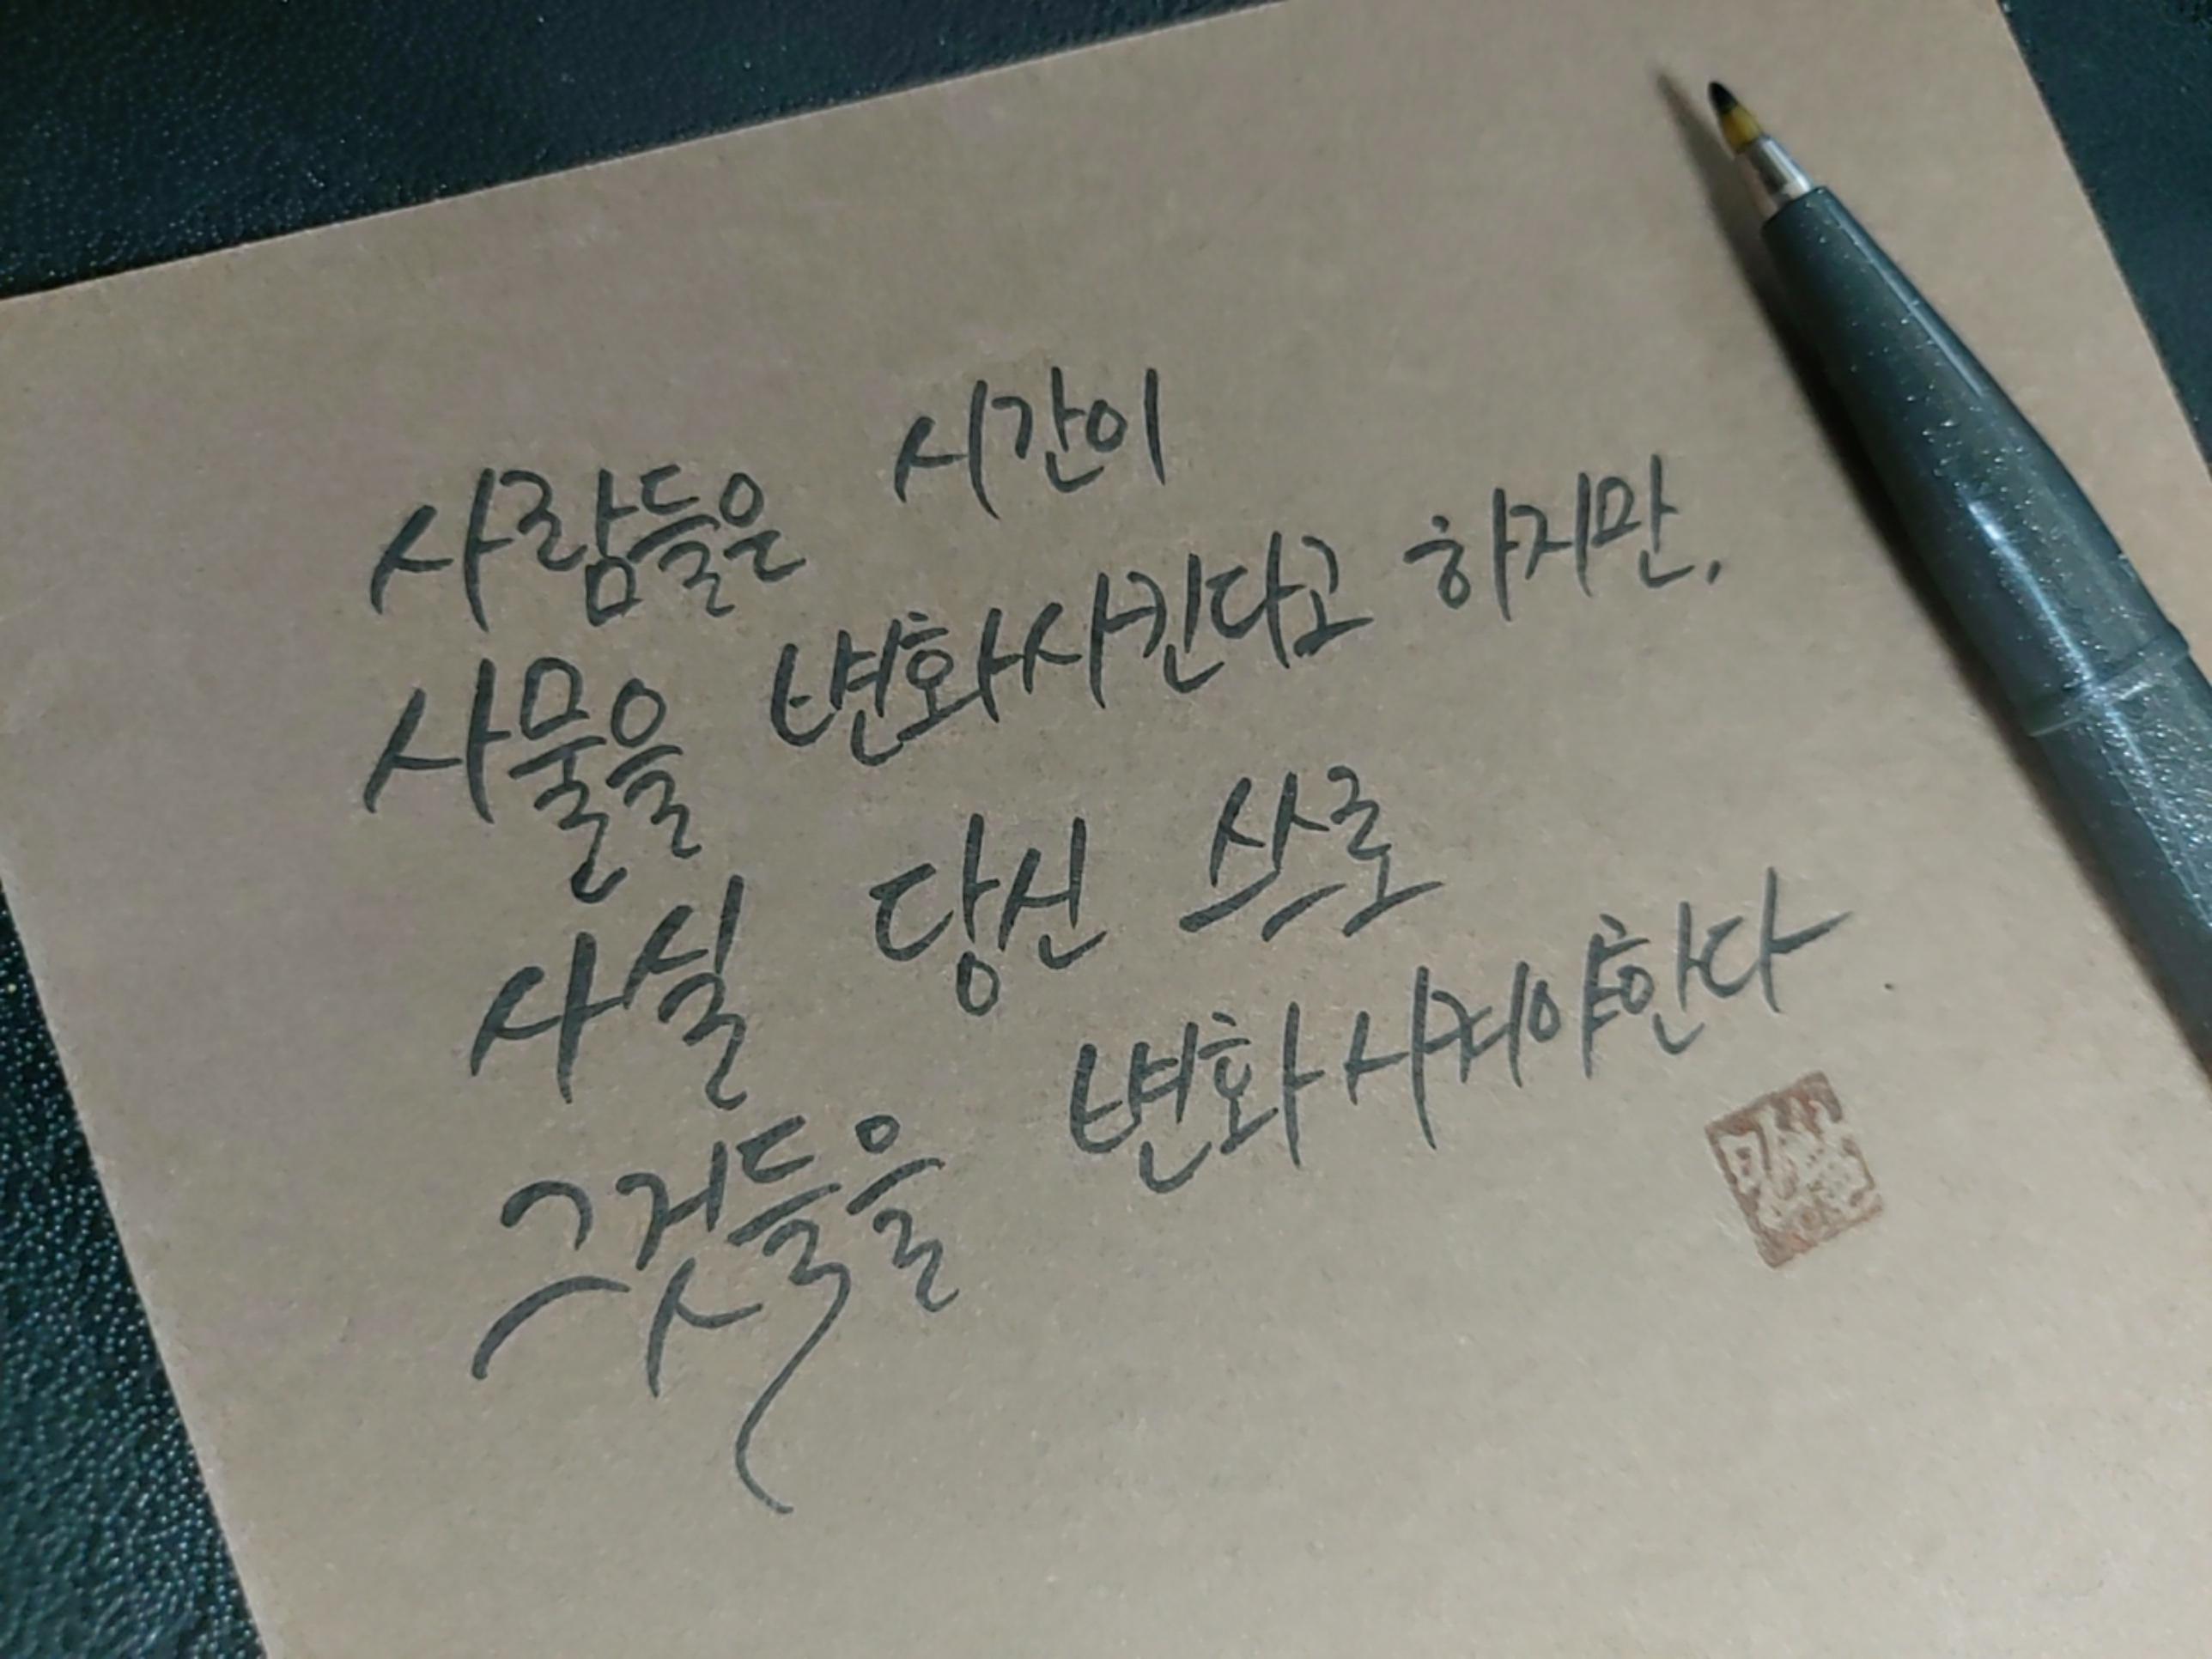 사람들은 시간이
사물을 변화시킨다고 하지만,
사실 당신 스스로
그것들을 변화시켜야한다